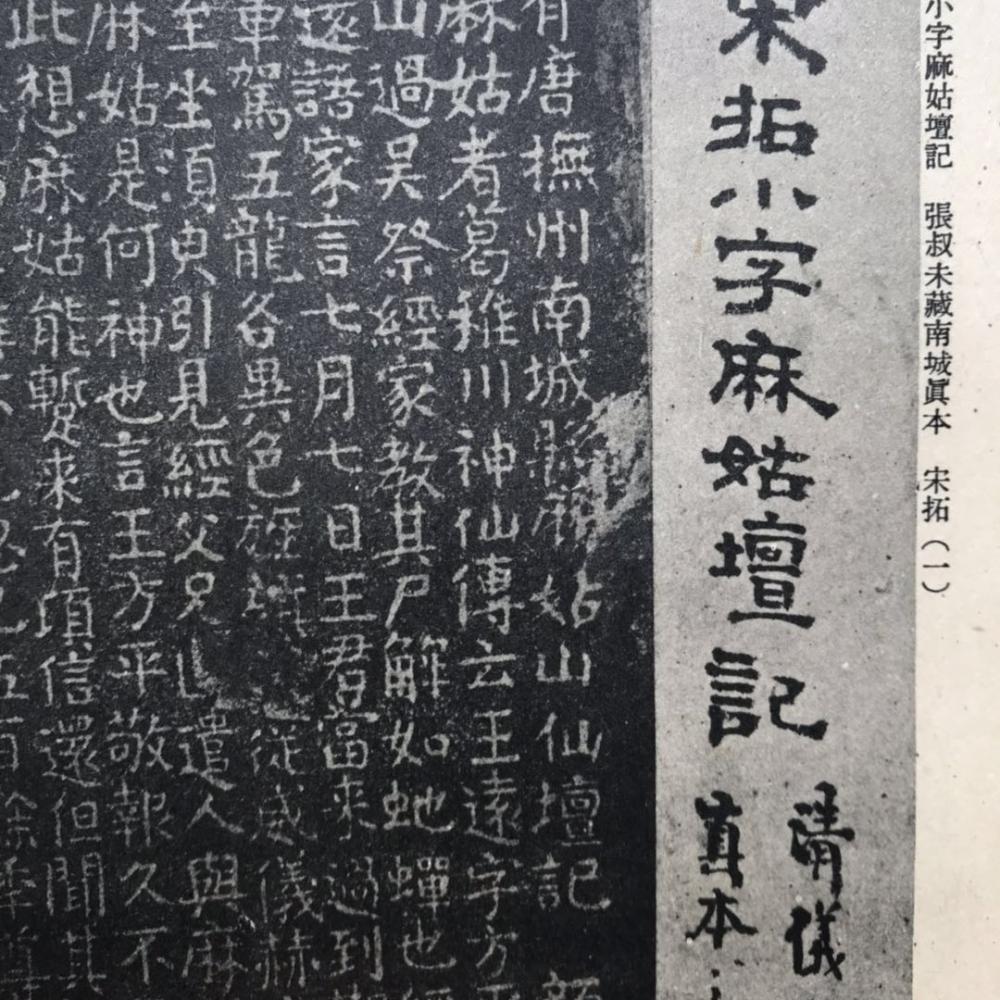 小字麻姑壇記 張叔未藏南城眞本 宋拓(一)
宋拓小字麻姑壇記
清儀
真本
有唐撫州南城縣麻姑山仙壇記 顏
麻姑者葛稚川神仙傳云王遠字方平
山過吳祭經家教其尸解如虵蟬也經
遠語家言七月七日王君當來過到期
車駕五龍各異色旌 從威儀赫
至坐須臾引見經父兄 遣人與麻
麻姑是何神也言王方平敬報久不
此想麻姑能暫來有頃信還但聞其